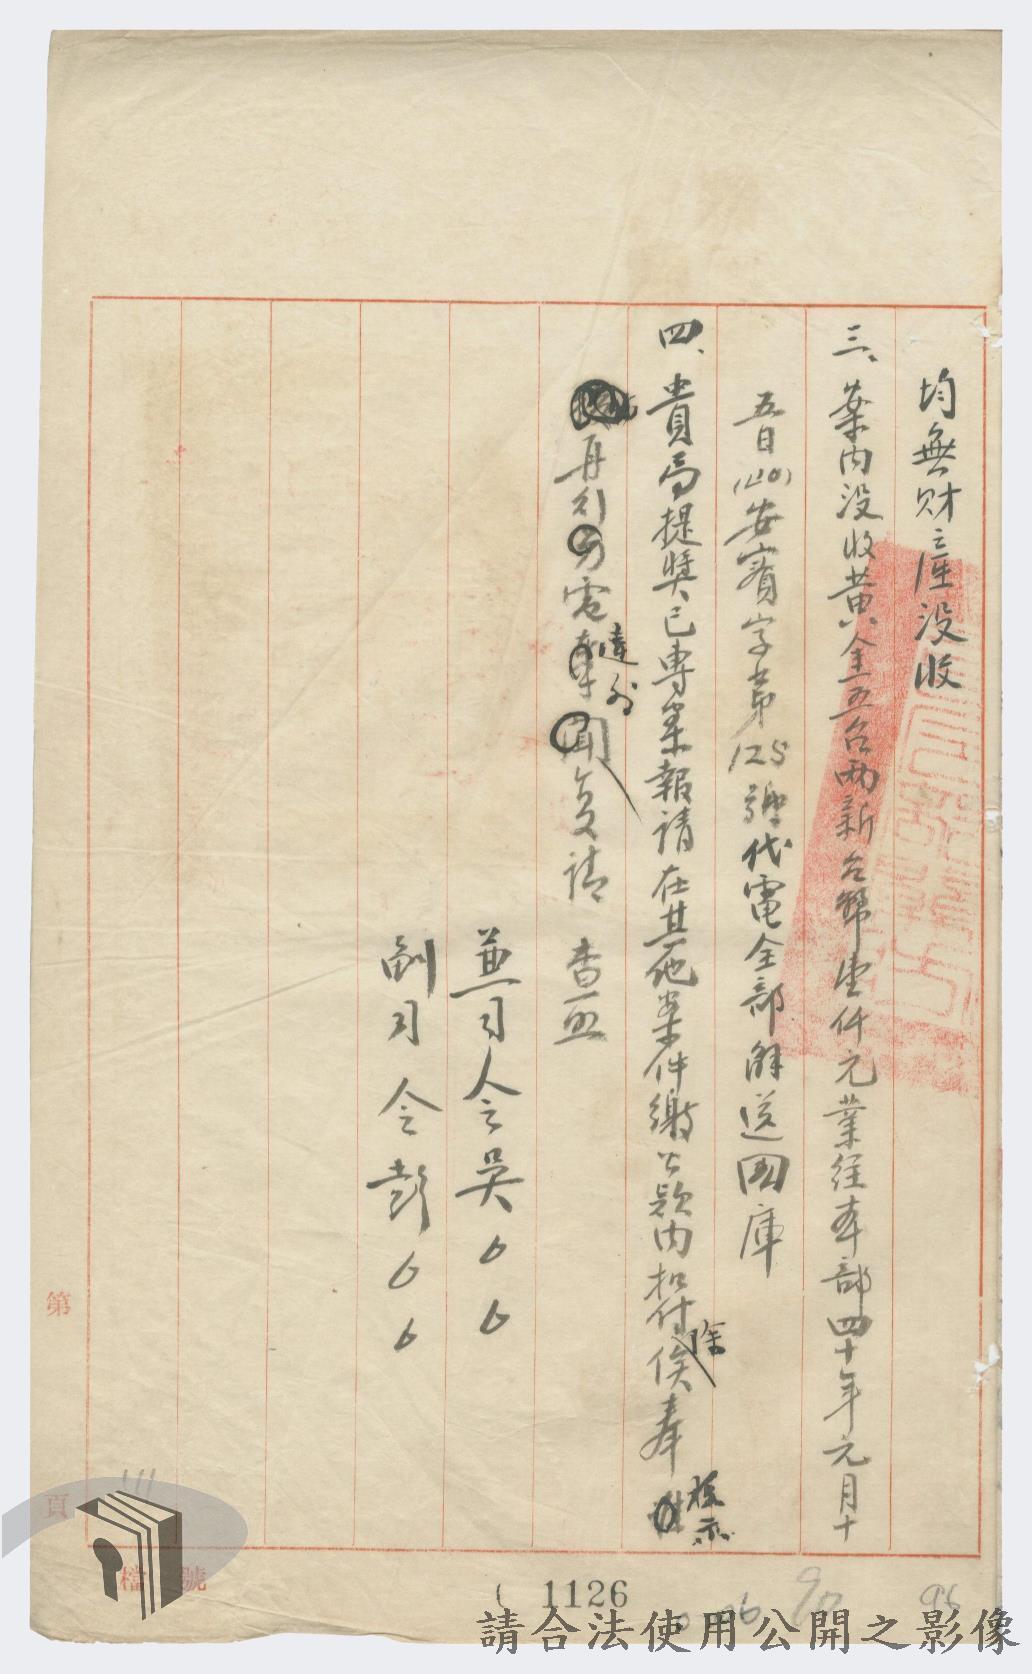 均無財產没收
三、案内没收黄金五台両新台幣壹仟元業經本部四十年元月十
五日(40)安賓字第125號代電全部解送國庫
四、貴局提獎已專案報請在其他案件繳公款内扣付除俟奉核示
再行電達外復請 查照
兼司令吳
副司令彭
第
頁
檔 號
1126
請合法使用公開之影像